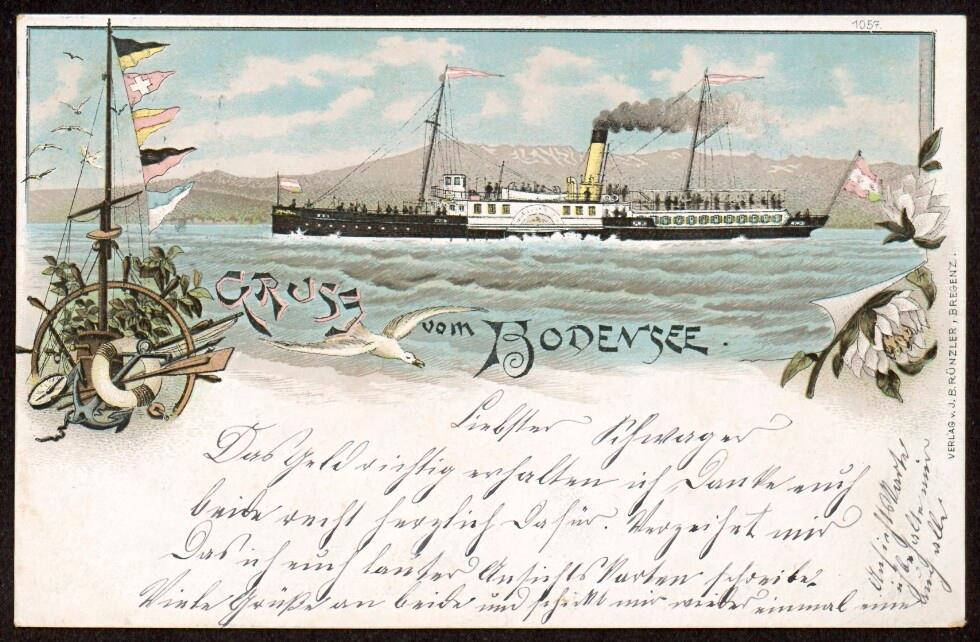 1057.
GRUSZ
vom BODENSEE.
VERLAG v. J. B. RÜNZLER, BREGENZ.
Liebster Schwager
Das Geld richtig erhalten ich Danke euch
beide recht herzlich Dafür. Verzeihet mir
Das ich euch lauter Ansichts Karten schreibe.
Viele Grüße an beide und schickt mir wieder einmal eine
Ansichts Karte
alle